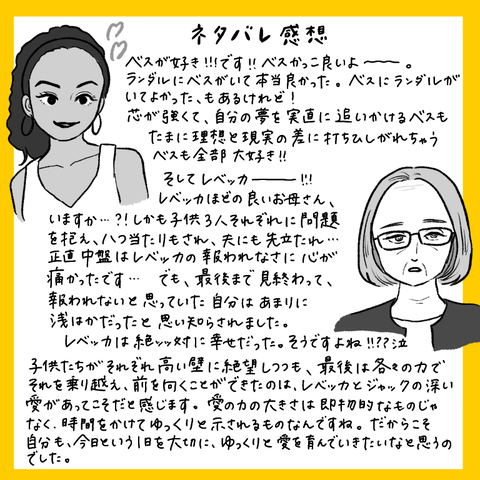 ネタバレ感想
ベスが好き!!!です!!ベスかっこ良いよ――。
ランダルにベスがいて本当良かった。ベスにランダルが
いてよかった、もあるけれど!
芯が強くて、自分の夢を実直に追いかけるベスも
たまに理想と現実の差に打ちひしがれちゃう
ベスも全部大好き!!
そしてレベッカ――!!!
レベッカほどの良いお母さん、
いますか…?!しかも子供3人それぞれに問題
を抱え、八つ当たりもされ、夫にも先立たれ…
正直中盤はレベッカの報われなさに心が
痛かったです… でも、最後まで見終わって、
報われないと思っていた自分はあまりに
浅はかだったと思い知らされました。
レベッカは絶ッッ対に幸せだった。そうですよね!!??泣
子供たちがそれぞれ高い壁に絶望しつつも、最後は各々の力で
それを乗り越え、前を向くことができたのは、レベッカとジャックの深い
愛があってこそだと感じます。愛の力の大きさは即物的なものじゃ
なく、時間をかけてゆっくりと示されるものなんですね。だからこそ
自分も、今日という1日を大切に、ゆっくりと愛を育んでいきたいなと思うの
でした。